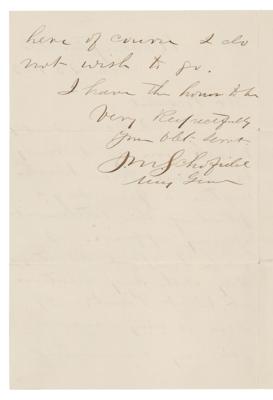 here of course I do
not wish to go.
I have the honor to be
Very Respectfully
Your Obt. Servt.
JM Schofield
Maj Genl